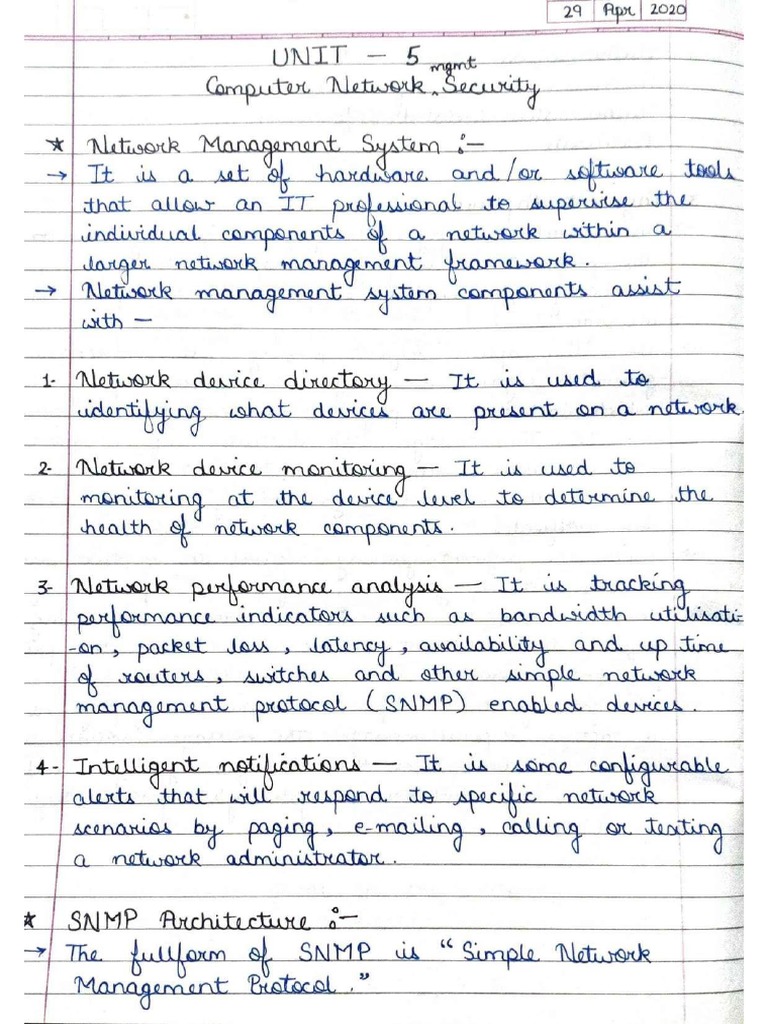 29 Apr 2020
UNIT - 5
mgmt
Computer Network Security
★ Network Management System :-
→ It is a set of hardware and/or software tools
that allow an IT professional to supervise the
individual components of a network within a
larger network management framework.
→ Network management system components assist
with -
1- Network device directory - It is used to
identifying what devices are present on a network.
2- Network device monitoring - It is used to
monitoring at the device level to determine the
health of network components.
3- Network performance analysis - It is tracking
performance indicators such as bandwidth utilisati-
-on, packet loss, latency, availability and up time
of routers, switches and other simple network
management protocol (SNMP) enabled devices.
4- Intelligent notifications - It is some configurable
alerts that will respond to specific network
scenarios by paging, e-mailing, calling or texting
a network administrator.
★ SNMP Architecture :-
→ The fullform of SNMP is "Simple Network
Management Protocol."